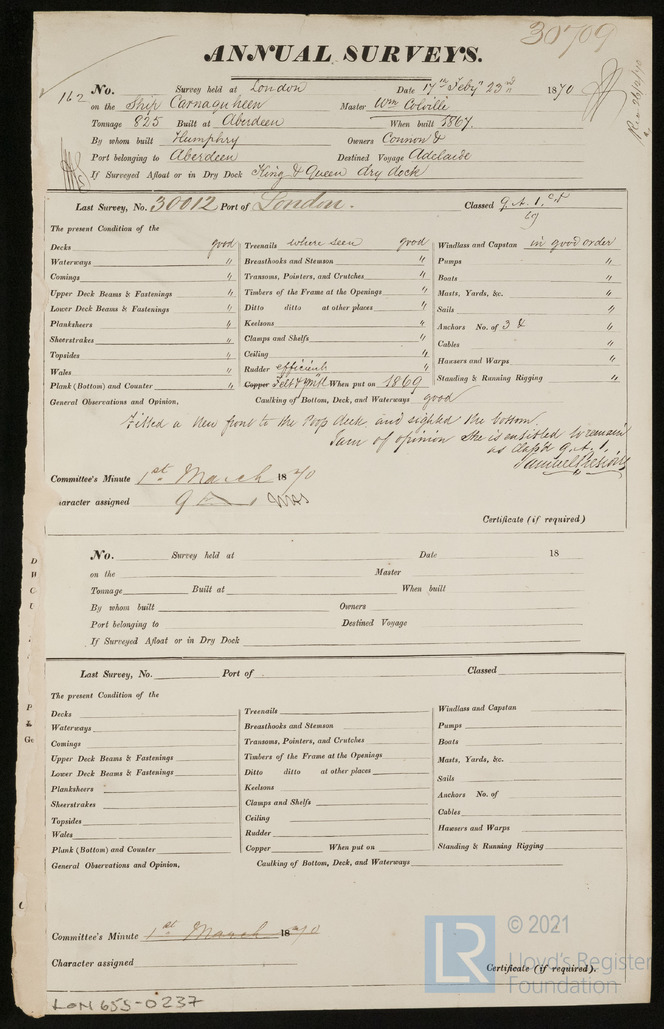 30709
ANNUAL SURVEYS.
162
No. Survey held at London Date 17th Feby 23rd 1870
on the Ship Carnaquheen Master Wm Colville
Tonnage 825 Built at Aberdeen When built 1867.
By whom built Humphry Owners Connon &
Port belonging to Aberdeen Destined Voyage Adelaide
If Surveyed Afloat or in Dry Dock King & Queen dry dock
Last Survey, No. 30012 Port of London. Classed 9.A.1.
The present Condition of the
Decks good Treenails where seen good Windlass and Capstan in good order
Waterways " Breasthooks and Stemson " Pumps "
Comings " Transoms, Pointers, and Crutches " Boats "
Upper Deck Beams & Fastenings " Timbers of the Frame at the Openings " Masts, Yards, &c. "
Lower Deck Beams & Fastenings " Ditto ditto at other places " Sails "
Planksheers " Keelsons " Anchors No. of 3 &
Sheerstrakes " Clamps and Shelfs " Cables "
Topsides " Ceiling " Hawsers and Warps "
Wales " Rudder efficient Standing & Running Rigging "
Plank (Bottom) and Counter " Copper Felt & YMl When put on 1869
General Observations and Opinion, Caulking of Bottom, Deck, and Waterways good
Fitted a New front to the Poop deck and sighted the bottom.
I am of opinion She is entitled to remain
as Class'd 9.A.1.
Committee's Minute 1st March 1870
Character assigned 9 A 1
Certificate (if required)
No. Survey held at Date 18
on the Master
Tonnage Built at When built
By whom built Owners
Port belonging to Destined Voyage
If Surveyed Afloat or in Dry Dock
Last Survey, No. Port of Classed
The present Condition of the
Decks Treenails Windlass and Capstan
Waterways Breasthooks and Stemson Pumps
Comings Transoms, Pointers, and Crutches Boats
Upper Deck Beams & Fastenings Timbers of the Frame at the Openings Masts, Yards, &c.
Lower Deck Beams & Fastenings Ditto ditto at other places Sails
Planksheers Keelsons Anchors No. of
Sheerstrakes Clamps and Shelfs Cables
Topsides Ceiling Hawsers and Warps
Wales Rudder Standing & Running Rigging
Plank (Bottom) and Counter Copper When put on
General Observations and Opinion, Caulking of Bottom, Deck, and Waterways
Committee's Minute 1st March 1870
Character assigned
Certificate (if required).
LON 655-0237
© 2021
LR Lloyd's Register
Foundation